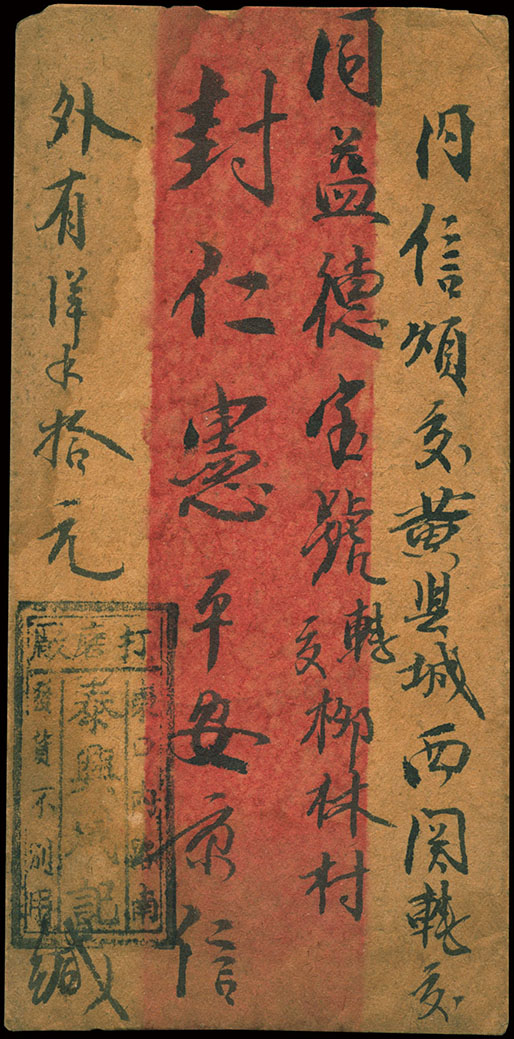 內信煩交黃县城西関轉交
同益德宝號轉交柳林村
封仁憲平安京信
外有洋木拾元
緘
打磨廠
東口 路南
泰興 記
發貨不別用